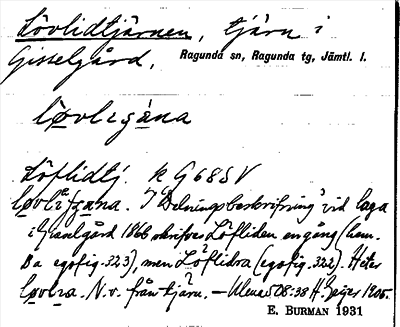 Lövlidtjärnen, tjärn i
Gisselgård, Ragunda sn, Ragunda tg, Jämtl. l.
løvlıʒäna
Löflidtj. k G 68 S V
I Delningsbeskrifning vid laga
i Gisselgård 1866 skrifves Löfliden en gång (ham.
Ba egofig. 323), men Löflidra (egofig. 322). Heter
N. v. från tjärn. — Ulma 508:38 H. Geijer 1905.
E. BURMAN 1931